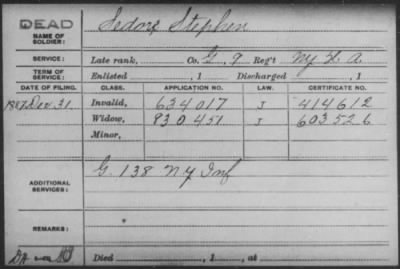 DEAD
NAME OF SOLDIER: Sedore Stephen
SERVICE: Late rank, Co. G, 9 Reg't N.Y. H. A.
TERM OF SERVICE: Enlisted , 1 Discharged , 1
DATE OF FILING. CLASS. APPLICATION NO. LAW. CERTIFICATE NO.
1887 Dec. 31 Invalid, 634017 J 414612
Widow, 930451 J 603526
Minor,
ADDITIONAL SERVICES: G. 138 N.Y. Inf
REMARKS:
Died , 1 , at